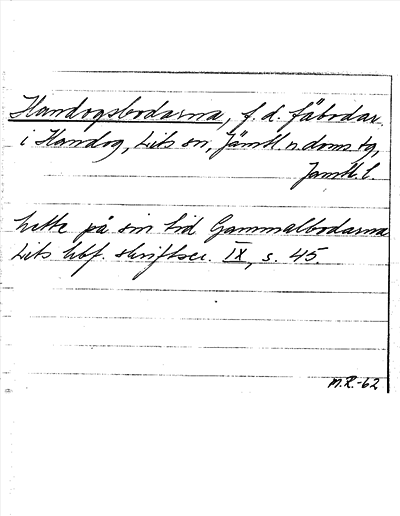 Handogsbodarna, f.d. fäbodar
i Handog, Lits sn, Jämtl n. doms tg,
Jämtl. l.
hette på sin tid Gammalbodarna
Lits hbf. skriftser. IX, s. 45.
M.R.-62